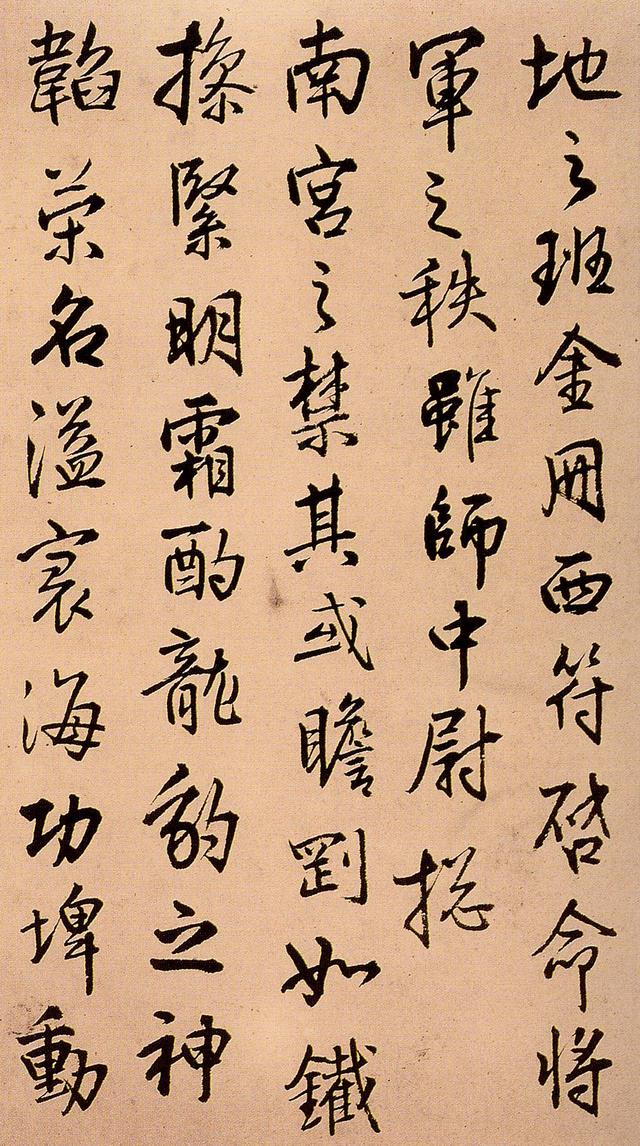 地之班金冊西符啓命將
軍之秩雖師中尉揔
南宮之禁其或膽剛如鐵
操緊明霜酌龍豹之神
韜榮名溢寰海功埤動